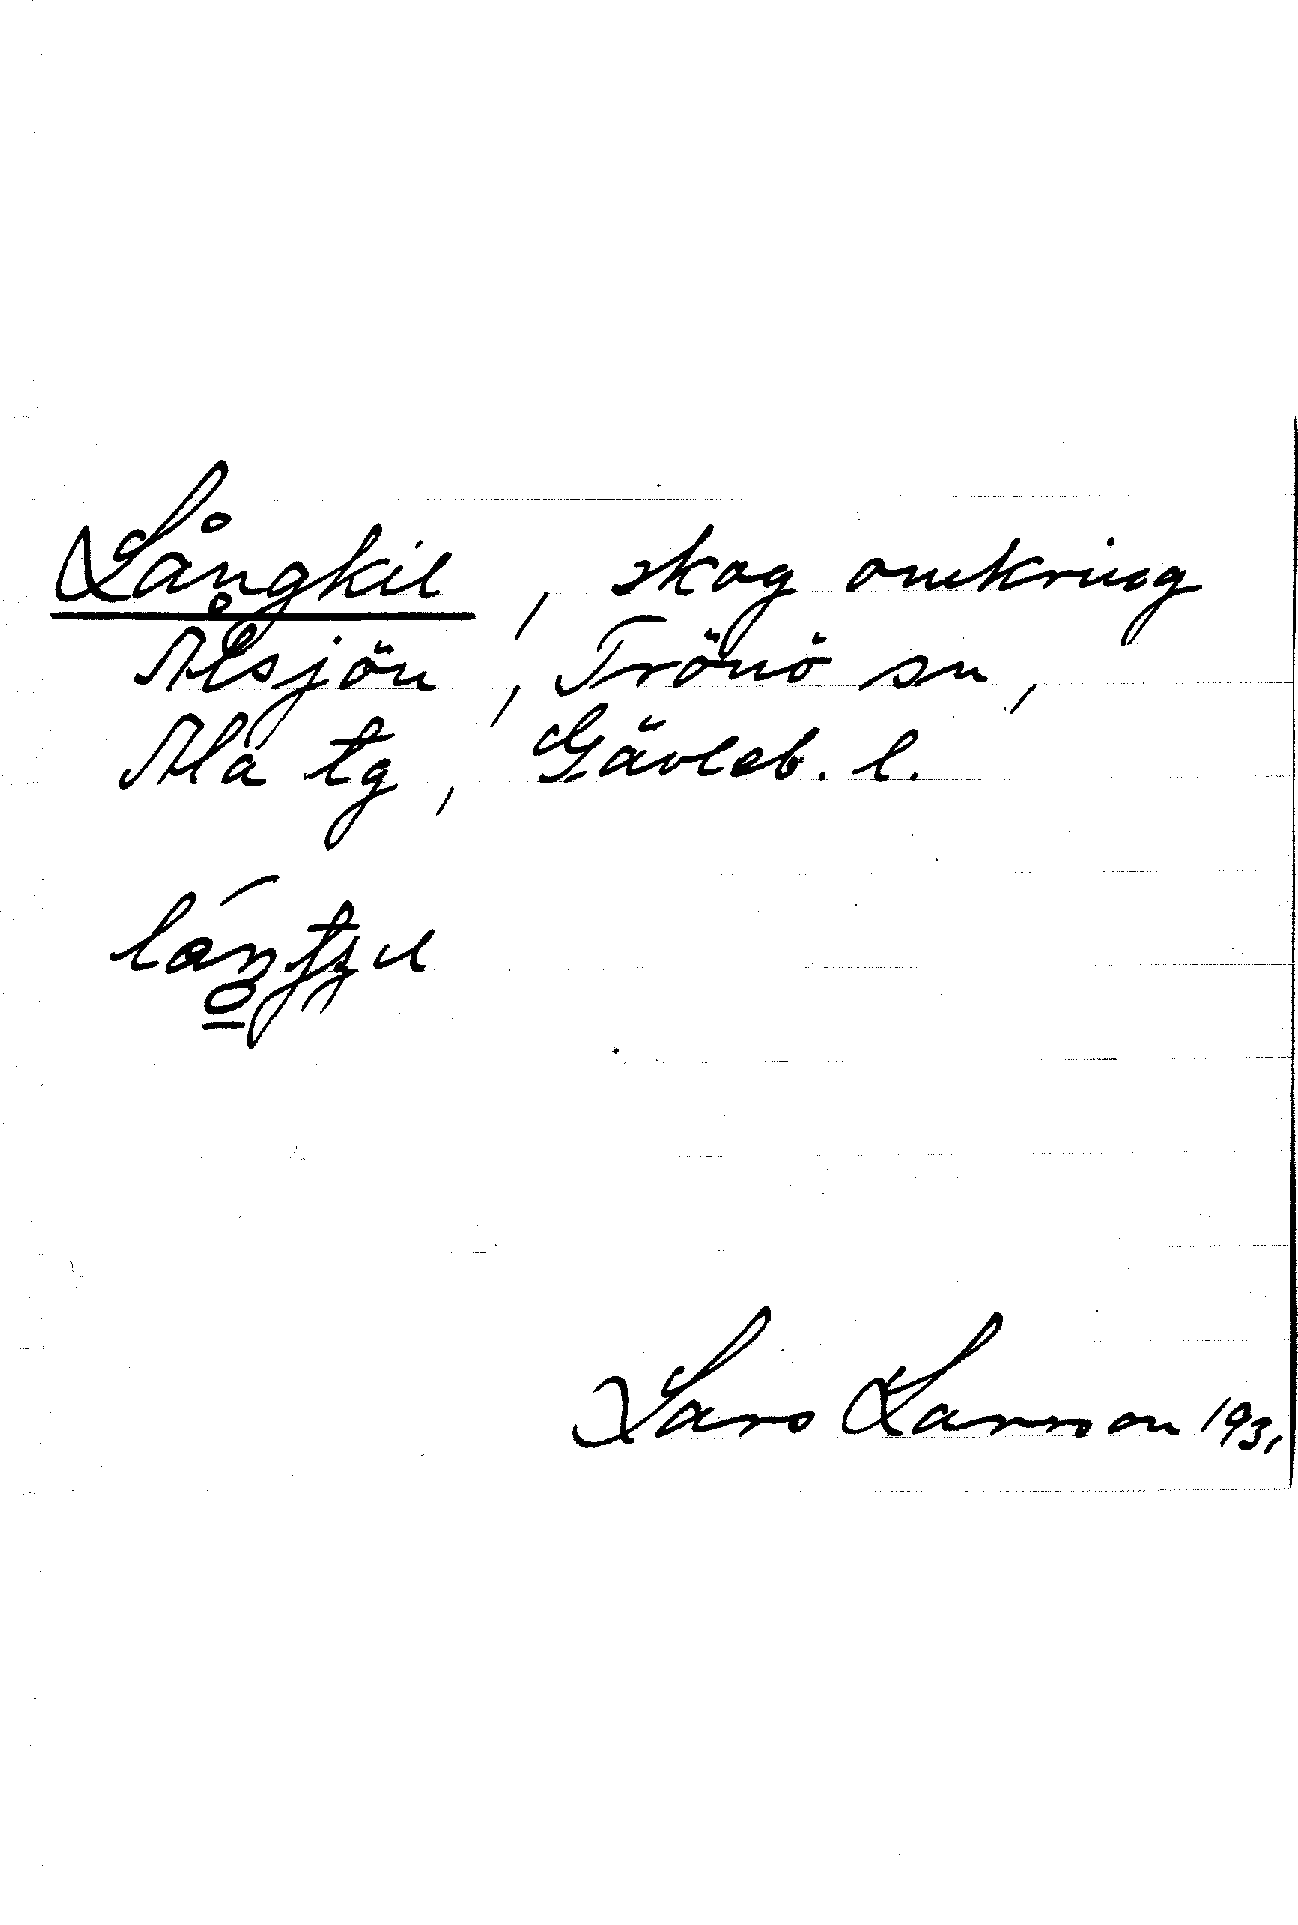 Långkil, skog omkring
Ålsjön, Trönö sn,
Ala tg, Gävleb. l.
Lars Larsson 1931